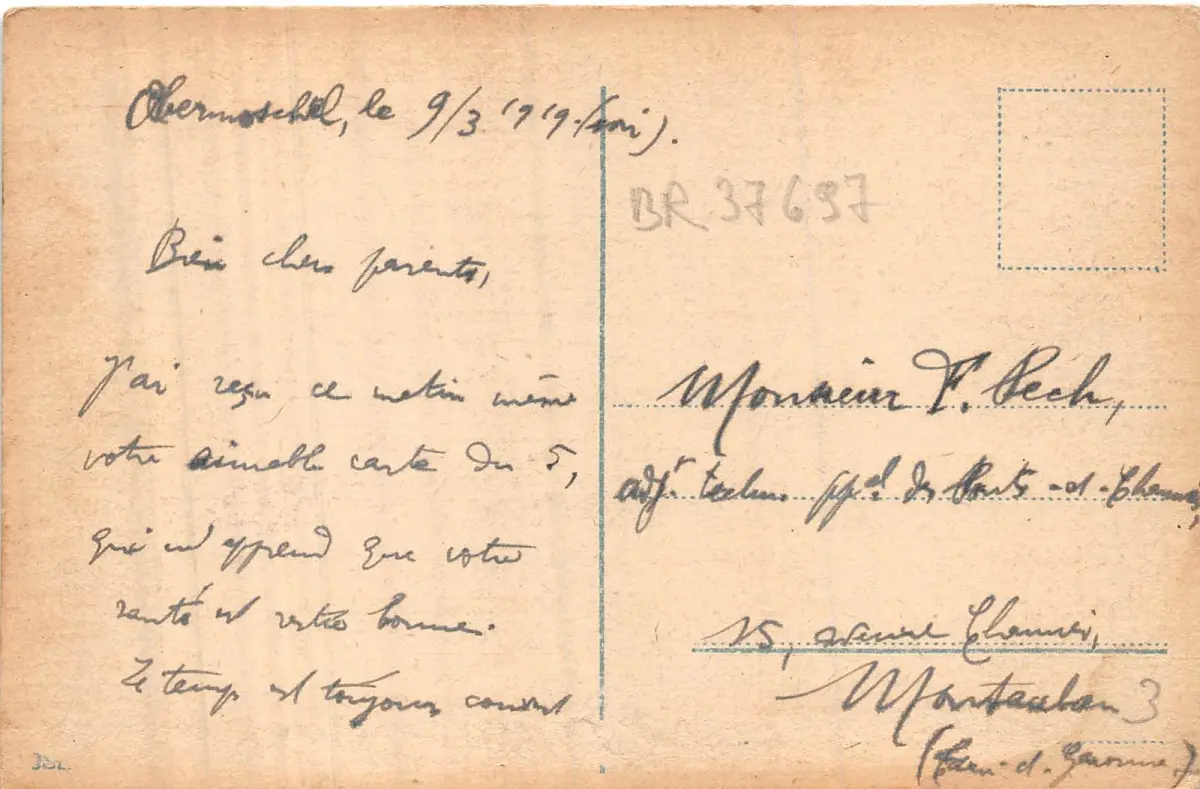 Obermoschel, le 9/3 1919 (soir).
Bien chers parents,
J'ai reçu ce matin même
votre aimable carte du 5,
qui m'apprend que votre
santé est restée bonne.
Le temps est toujours couvert
BR 37697
Monsieur F. Pech,
adjt techn. ppal des Ponts-et-Chaussées,
15, avenue Chamier,
Montauban 3
(Tarn-et-Garonne.)